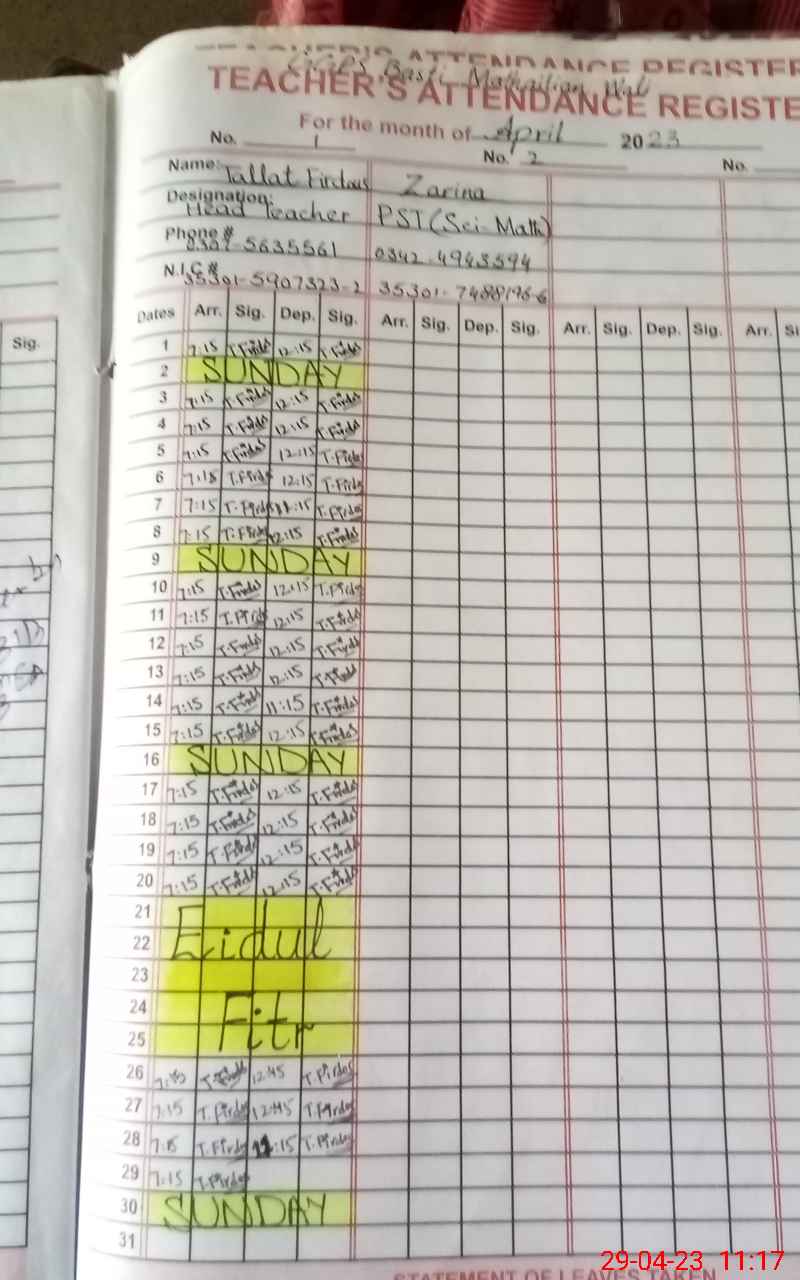 TEACHER'S ATTENDANCE REGISTER
GGPS Basti
TEACHER'S ATTENDANCE REGISTE
For the month of April 2023
No. 1 No. 2 No.
Name: Tallat Firdous Zarina
Designation: Head Teacher PST (Sci-Math)
Phone # 5635561 0342-4943594
N.I.C # 35301-5907323-2 35301-7488196-6
Sig. Dates Arr. Sig. Dep. Sig. Arr. Sig. Dep. Sig. Arr. Sig. Dep. Sig. Arr. Si
1 7:15 T.Firdos 12:15 T.Firdos
2 SUNDAY
3 7:15 T.Firdos 12:15 T.Firdos
4 7:15 T.Firdos 12:15 T.Firdos
5 7:15 T.Firdos 12:15 T.Firdos
6 7:15 T.Firdos 12:15 T.Firdos
7 7:15 T.Firdos 11:15 T.Firdos
8 7:15 T.Firdos 12:15 T.Firdos
9 SUNDAY
10 7:15 T.Firdos 12:15 T.Firdos
11 7:15 T.Firdos 12:15 T.Firdos
12 7:15 T.Firdos 12:15 T.Firdos
13 7:15 T.Firdos 12:15 T.Firdos
14 7:15 T.Firdos 11:15 T.Firdos
15 7:15 T.Firdos 12:15 T.Firdos
16 SUNDAY
17 7:15 T.Firdos 12:15 T.Firdos
18 7:15 T.Firdos 12:15 T.Firdos
19 7:15 T.Firdos 12:15 T.Firdos
20 7:15 T.Firdos 12:15 T.Firdos
21
22 Eidul
23
24 Fitr
25
26 7:15 T.Firdos 12:45 T.Firdos
27 7:15 T.Firdos 12:45 T.Firdos
28 T.Firdos 11:15 T.Firdos
29 7:15 T.Firdos
30 SUNDAY
31
STATEMENT OF LEAVES TAKEN
29-04-23 11:17